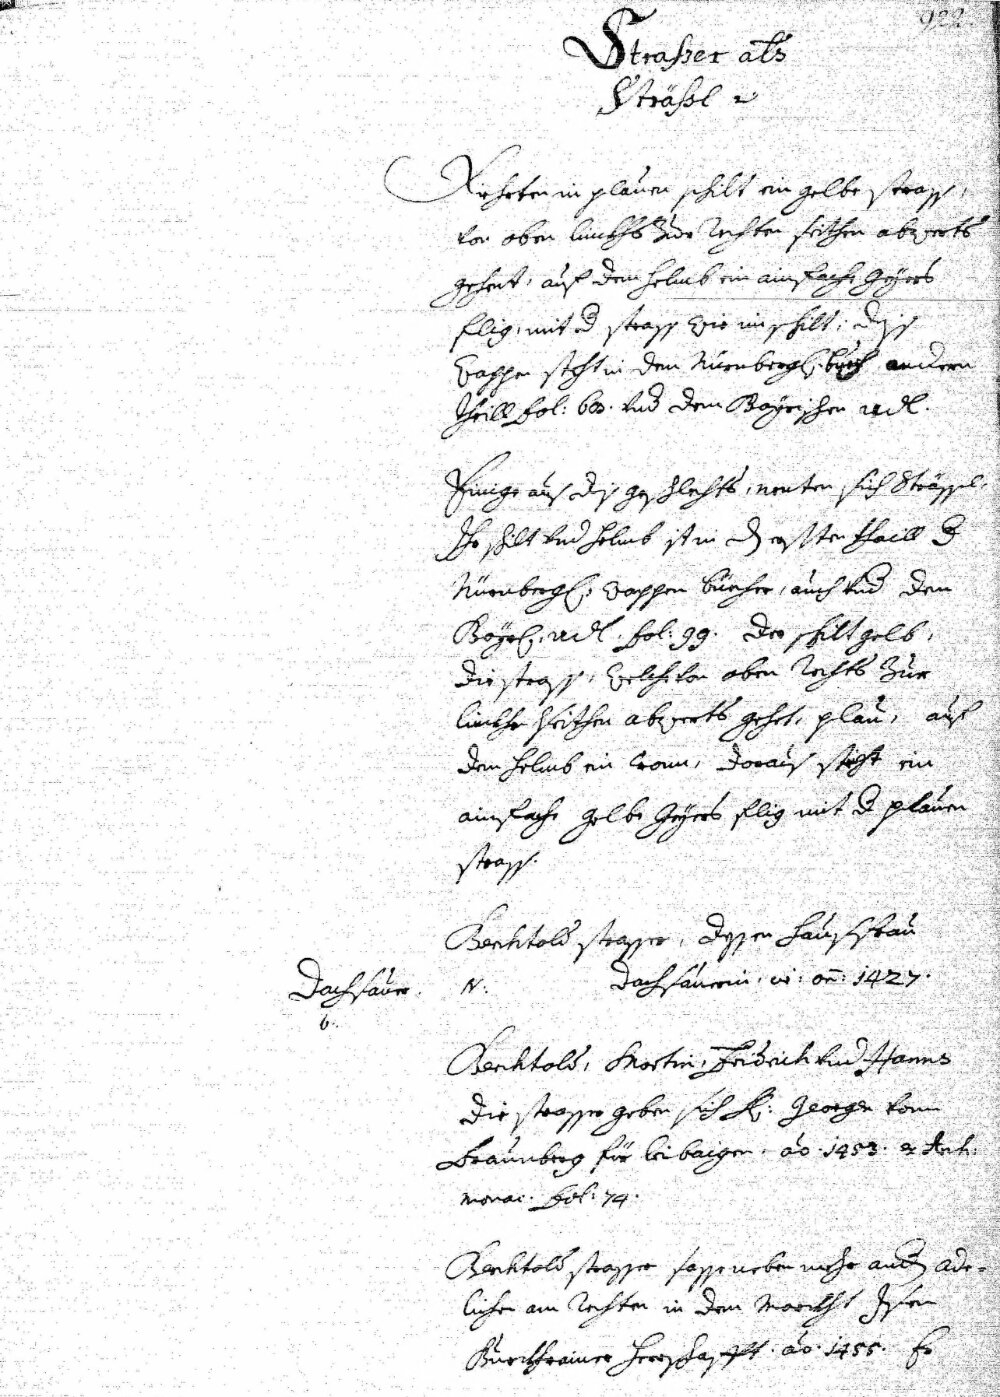 922.
Strasser als
Strässl
Fiehrten in plauen schilt ein gelbe strass,
von oben linckhs zur rechten seithen abwerts
gehent, auf dem helmb ein ainfache Geyers
flig, mit d strass wie im schilt, diss
wappen steht in dem Nürnbergl: buech andern
theill fol: 60. vnd dem Bayrischen adl.
Einige aus diss geschlechts, nenten sich Strässel,
Ihr schilt vnd helmb ist in dem ersten thaill d
Nürnbergl: wappen buecher, auch vnd dem
Bayrl: adl. fol: 99. der schilt gelb,
die strass, welche von oben rechts zur
linckhen seithen abwerts gehet, plau, auf
dem helmb ein Cron, doraus steht ein
ainfache gelbe Geyers flig mit d plauen
strass.
Berchtold strasser, dessen hausfrau
Dachsauer. N. Dachsauerin. vi: ao: 1427.
6.
Berchtold, Martin, Fridrich vnd Hanns
die strasser geben sich H: Georgen vom
Fraunberg für leibaigen. ao. 1453. Arch:
monac. fol: 74.
Berchtold strasser sasse neben mehr andern ade-
lichen am rechten in dem Marckht Isen
Burckhrainer herrschafft. ao. 1455. Er